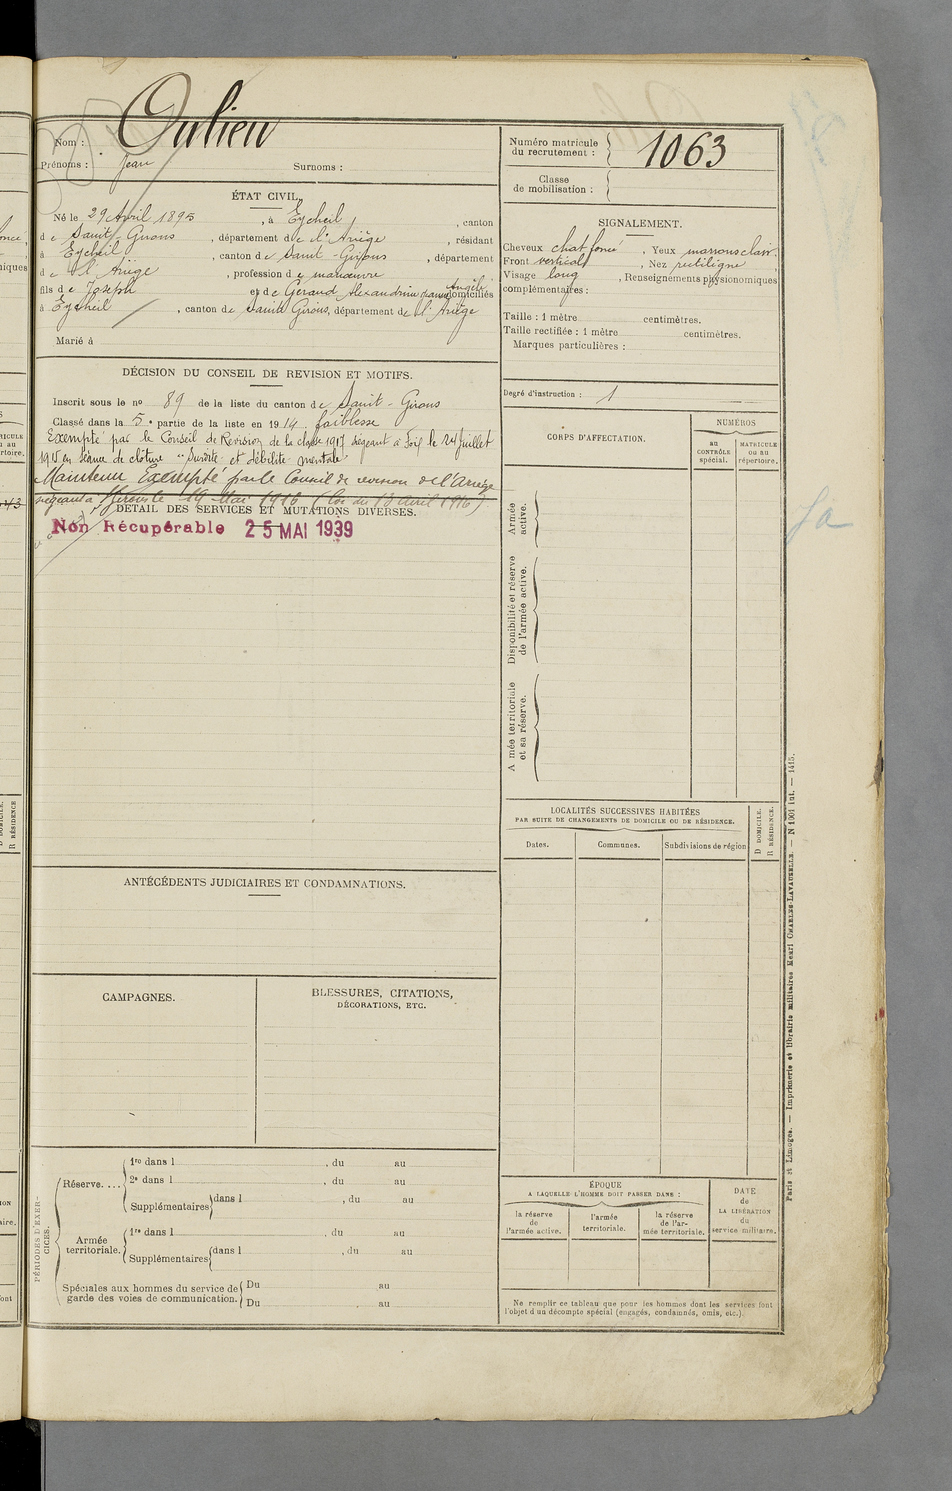 Nom : Oulieu
Prénoms : Jean Surnoms :
Numéro matricule du recrutement : 1063
Classe de mobilisation :
ÉTAT CIVIL.
Né le 29 Avril 1895, à Eycheil, canton
de Saint-Girons, département de l'Ariège, résidant
à Eycheil, canton de Saint-Girons, département
de l'Ariège, profession de manœuvre
fils de Joseph et de Géraud Alexandrine Angèle domiciliés
à Eycheil, canton de Saint Girons, département de l'Ariège
Marié à
SIGNALEMENT.
Cheveux chat foncé, Yeux marrons clair.
Front vertical, Nez rectiligne
Visage long, Renseignements physionomiques
complémentaires :
Taille : 1 mètre centimètres.
Taille rectifiée : 1 mètre centimètres.
Marques particulières :
DÉCISION DU CONSEIL DE REVISION ET MOTIFS.
Inscrit sous le no 89 de la liste du canton de Saint-Girons
Classé dans la 5e partie de la liste en 1914. faiblesse
Exempté par le Conseil de Revision de la classe 1917 siégeant à Foix le 24 juillet
1915 en séance de clôture "Surdité et débilité mentale"
Maintenu Exempté par le Conseil de revision de l'Ariège
siégeant à St Girons le 19 Mai 1916 (Loi du 13 Avril 1916)
DÉTAIL DES SERVICES ET MUTATIONS DIVERSES.
Non Récupérable 25 MAI 1939
Degré d'instruction : 1
CORPS D'AFFECTATION.
NUMÉROS
au CONTRÔLE spécial.
MATRICULE ou au répertoire.
Armée active.
Disponibilité et réserve de l'armée active.
A mée territoriale et sa réserve.
LOCALITÉS SUCCESSIVES HABITÉES
PAR SUITE DE CHANGEMENTS DE DOMICILE OU DE RÉSIDENCE.
D DOMICILE.
R RÉSIDENCE.
Dates. Communes. Subdivisions de région
ANTÉCÉDENTS JUDICIAIRES ET CONDAMNATIONS.
CAMPAGNES.
BLESSURES, CITATIONS,
DÉCORATIONS, ETC.
PÉRIODES D'EXERCICES.
Réserve....
1re dans l , du au
2e dans l , du au
Supplémentaires dans l , du au
Armée territoriale.
1re dans l , du au
Supplémentaires dans l , du au
Spéciales aux hommes du service de
garde des voies de communication.
Du au
Du au
ÉPOQUE
A LAQUELLE L'HOMME DOIT PASSER DANS :
la réserve de l'armée active.
l'armée territoriale.
la réserve de l'armée territoriale.
DATE de LA LIBÉRATION du service militaire.
Ne remplir ce tableau que pour les hommes dont les services font
l'objet d'un décompte spécial (engagés, condamnés, omis, etc.)
Paris et Limoges. — Imprimerie et librairie militaires Henri CHARLES-LAVAUZELLE. — N 1001 int. — 1415.